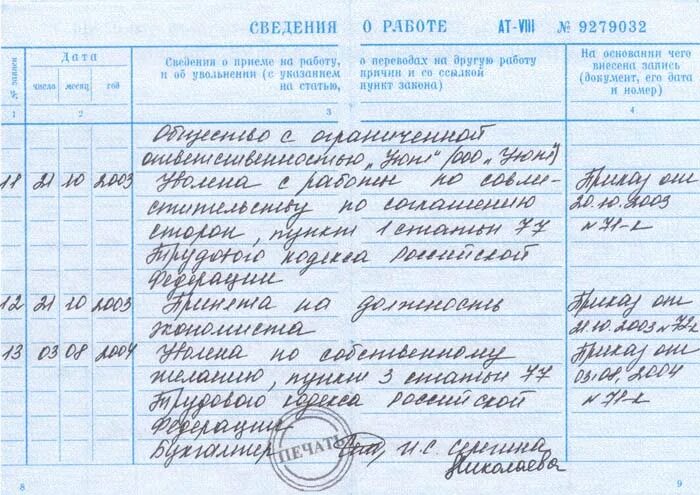 СВЕДЕНИЯ О РАБОТЕ АТ-VIII № 9279032
№ записи
Дата
число месяц год
Сведения о приеме на работу, о переводах на другую работу
и об увольнении (с указанием причин и со ссылкой
на статью, пункт закона)
На основании чего
внесена запись
(документ, его дата
и номер)
1 2 3 4
Общество с ограниченной
ответственностью „Уют“ /ООО „Уют“)
11 21 10 2003 Уволена с работы по совме- Приказ от
стительству по соглашению 20.10.2003
сторон, пункт 1 статьи 77 №71-к
Трудового кодекса Российской
Федерации
12 21 10 2003 Принята на должность Приказ от
экономиста 21.10.2003 №72
13 03 08 2004 Уволена по собственному Приказ от
желанию, пункт 3 статьи 77 03.08.2004
Трудового кодекса Российской №71-к
Федерации
Бухгалтер И.С. Серегина
ПЕЧАТЬ
Николаева
8 9